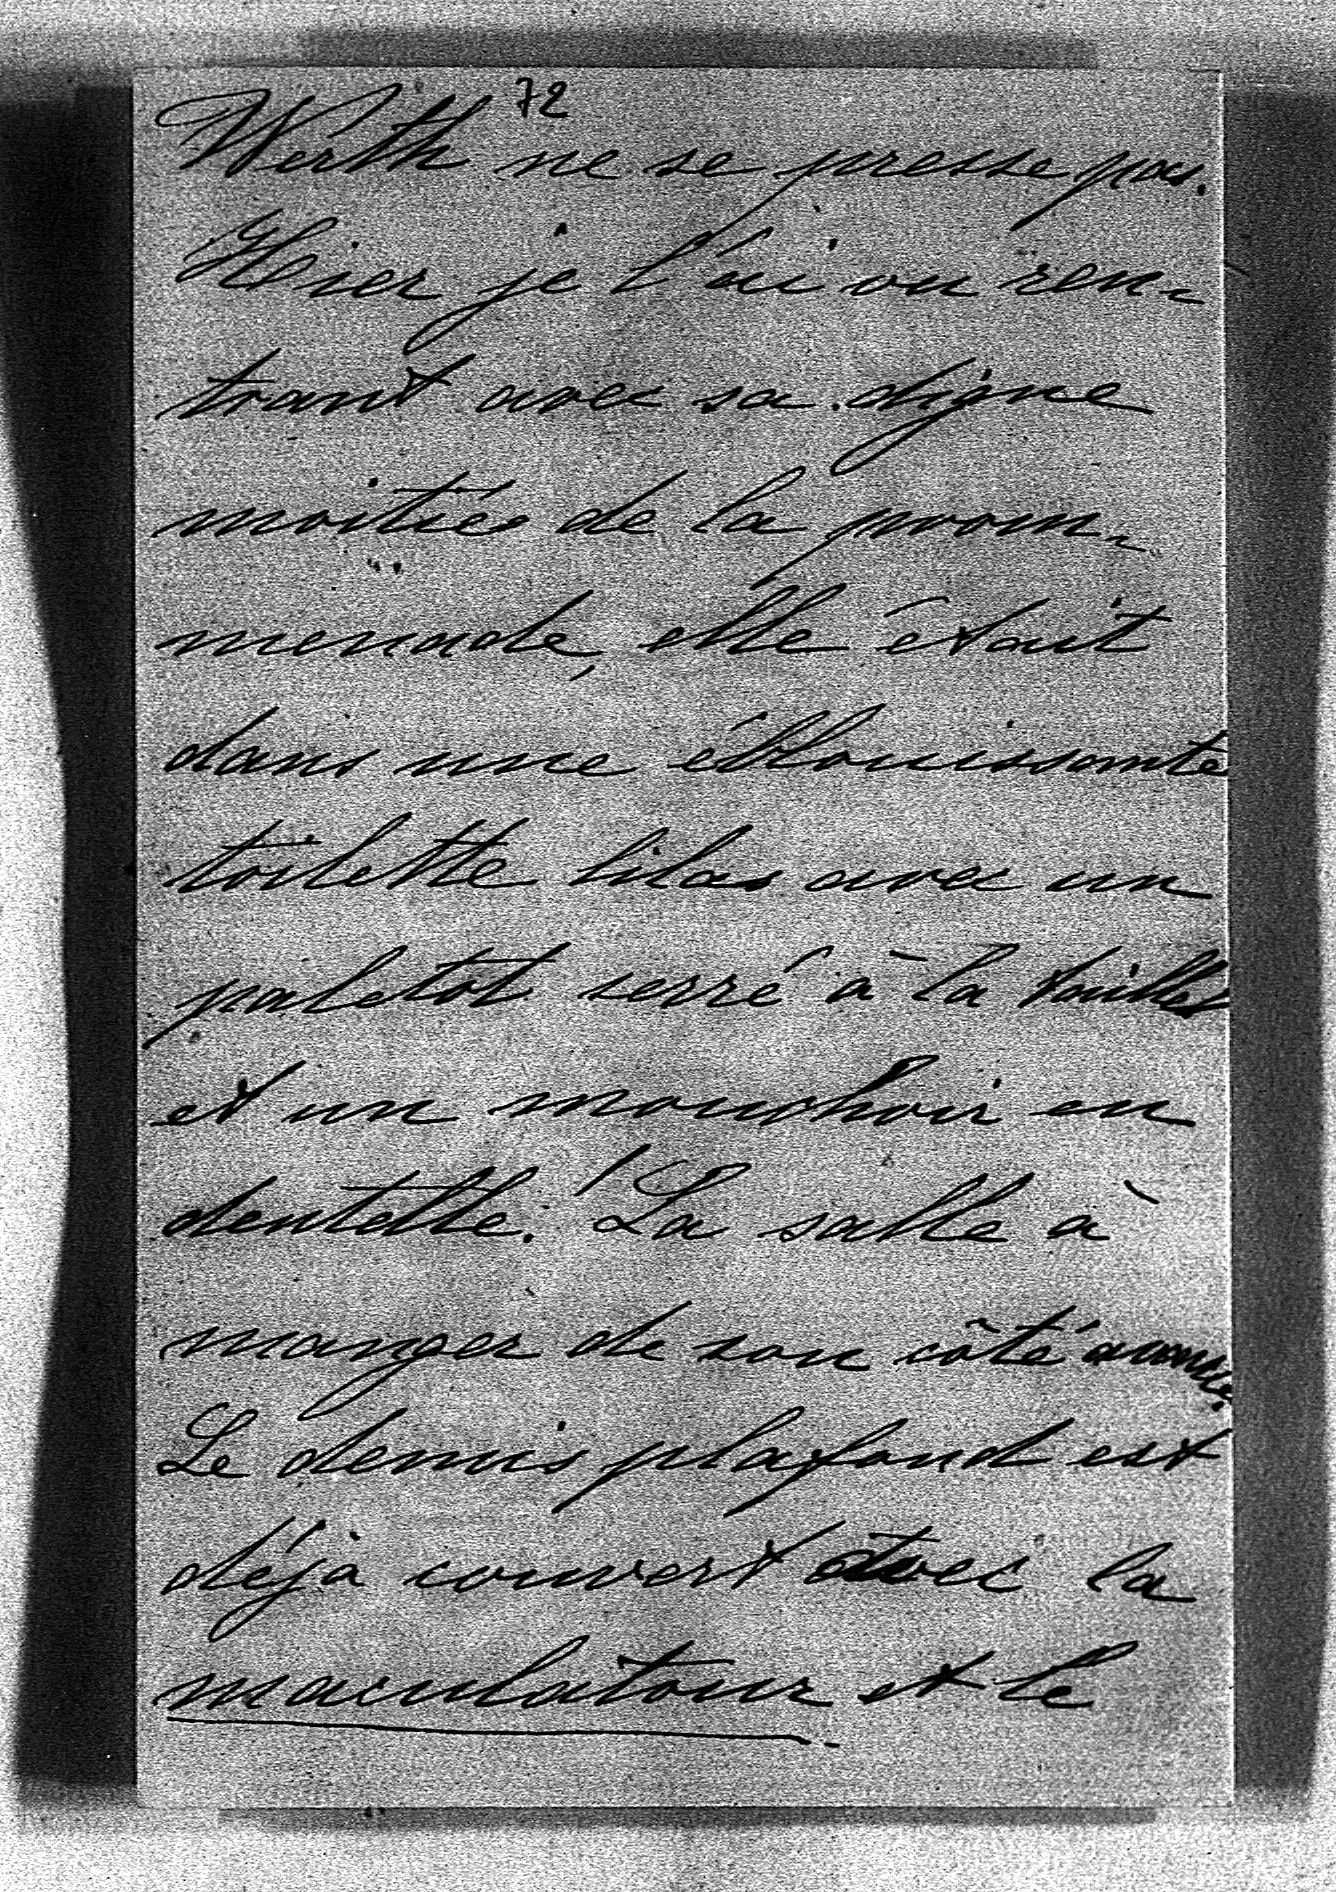 72
Werth ne se presse pas.
Hier je l'ai vu ren-
trant avec sa digne
moitiée de la prom-
menade, elle était
dans une éblouissante
toilette lilas avec un
paletot serré à la taille
et un mouchoir en
dentelle! La salle à
manger de son côté avance.
Le demis plafond est
déjà couvert avec la
maculatour et le